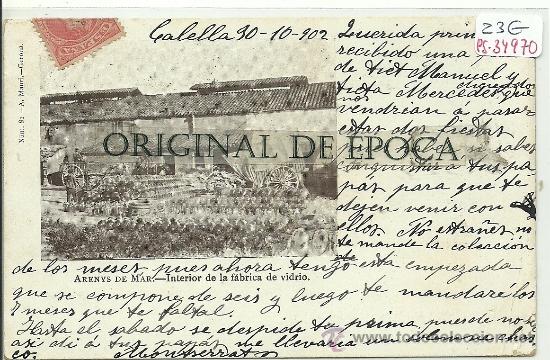 Calella 30-10-902
23G
PS-34970
Núm. 82 - A. Mauri, - Gerona.
Querida prima
recibido una
de tiet Manuel y
tieta Mercedes
vendrian á pasar
estas dos fiestas
conquistar a tus pa
pas para que te
dejen venir con
ellos. No estrañes no
te mande la coleccion
ORIGINAL DE EPOCA
de los meses pues ahora tengo esta empezada
ARENYS DE MAR.—Interior de la fábrica de vidrio.
que se compone de seis y luego te mandaré los
meses que te faltal.
Hasta el sabado se despide tu prima, puede
asi di á tus papas me llevaria
co. Montserrat
todocoleccion.net